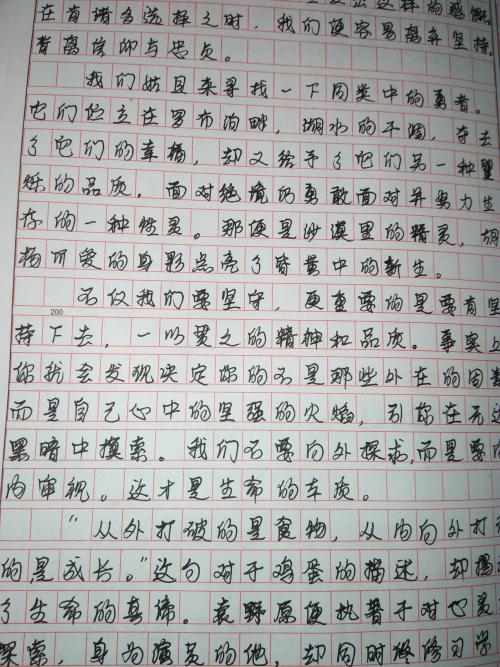 在有诸多选择之时，我们便容易离弃坚持。
背离信仰与忠贞。
我们姑且来寻找一下同类中的勇者。
它们伫立在罗布泊畔，湖水的干涸，夺去
了它们的幸福，却又给予了它们另一种璧
烁的品质，面对绝境的勇敢面对并努力生
存的一种性灵。那便是沙漠里的精灵，胡
杨可爱的身影点亮了昏黄中的新生。
不仅我们要坚守，更重要的是要有坚
200
持下去，一以贯之的精神和品质。事实上
你就会发现决定你的不是那些外在的因素
而是自己心中的坚强的火焰，引你在无边
黑暗中摸索。我们不要向外探求，而是要向
内审视。这才是生命的本质。
“从外打破的是食物，从内向外打破
的，是成长。”这句对于鸡蛋的描述，却揭
了生命的真谛。袁野原便执着于对心灵
探索，身为演员的他，却同时被修习学